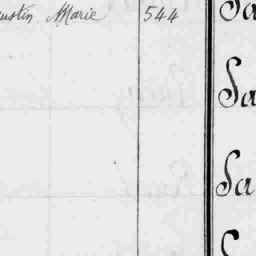 ustin Marie 544
Sa
Sa
Sa
S